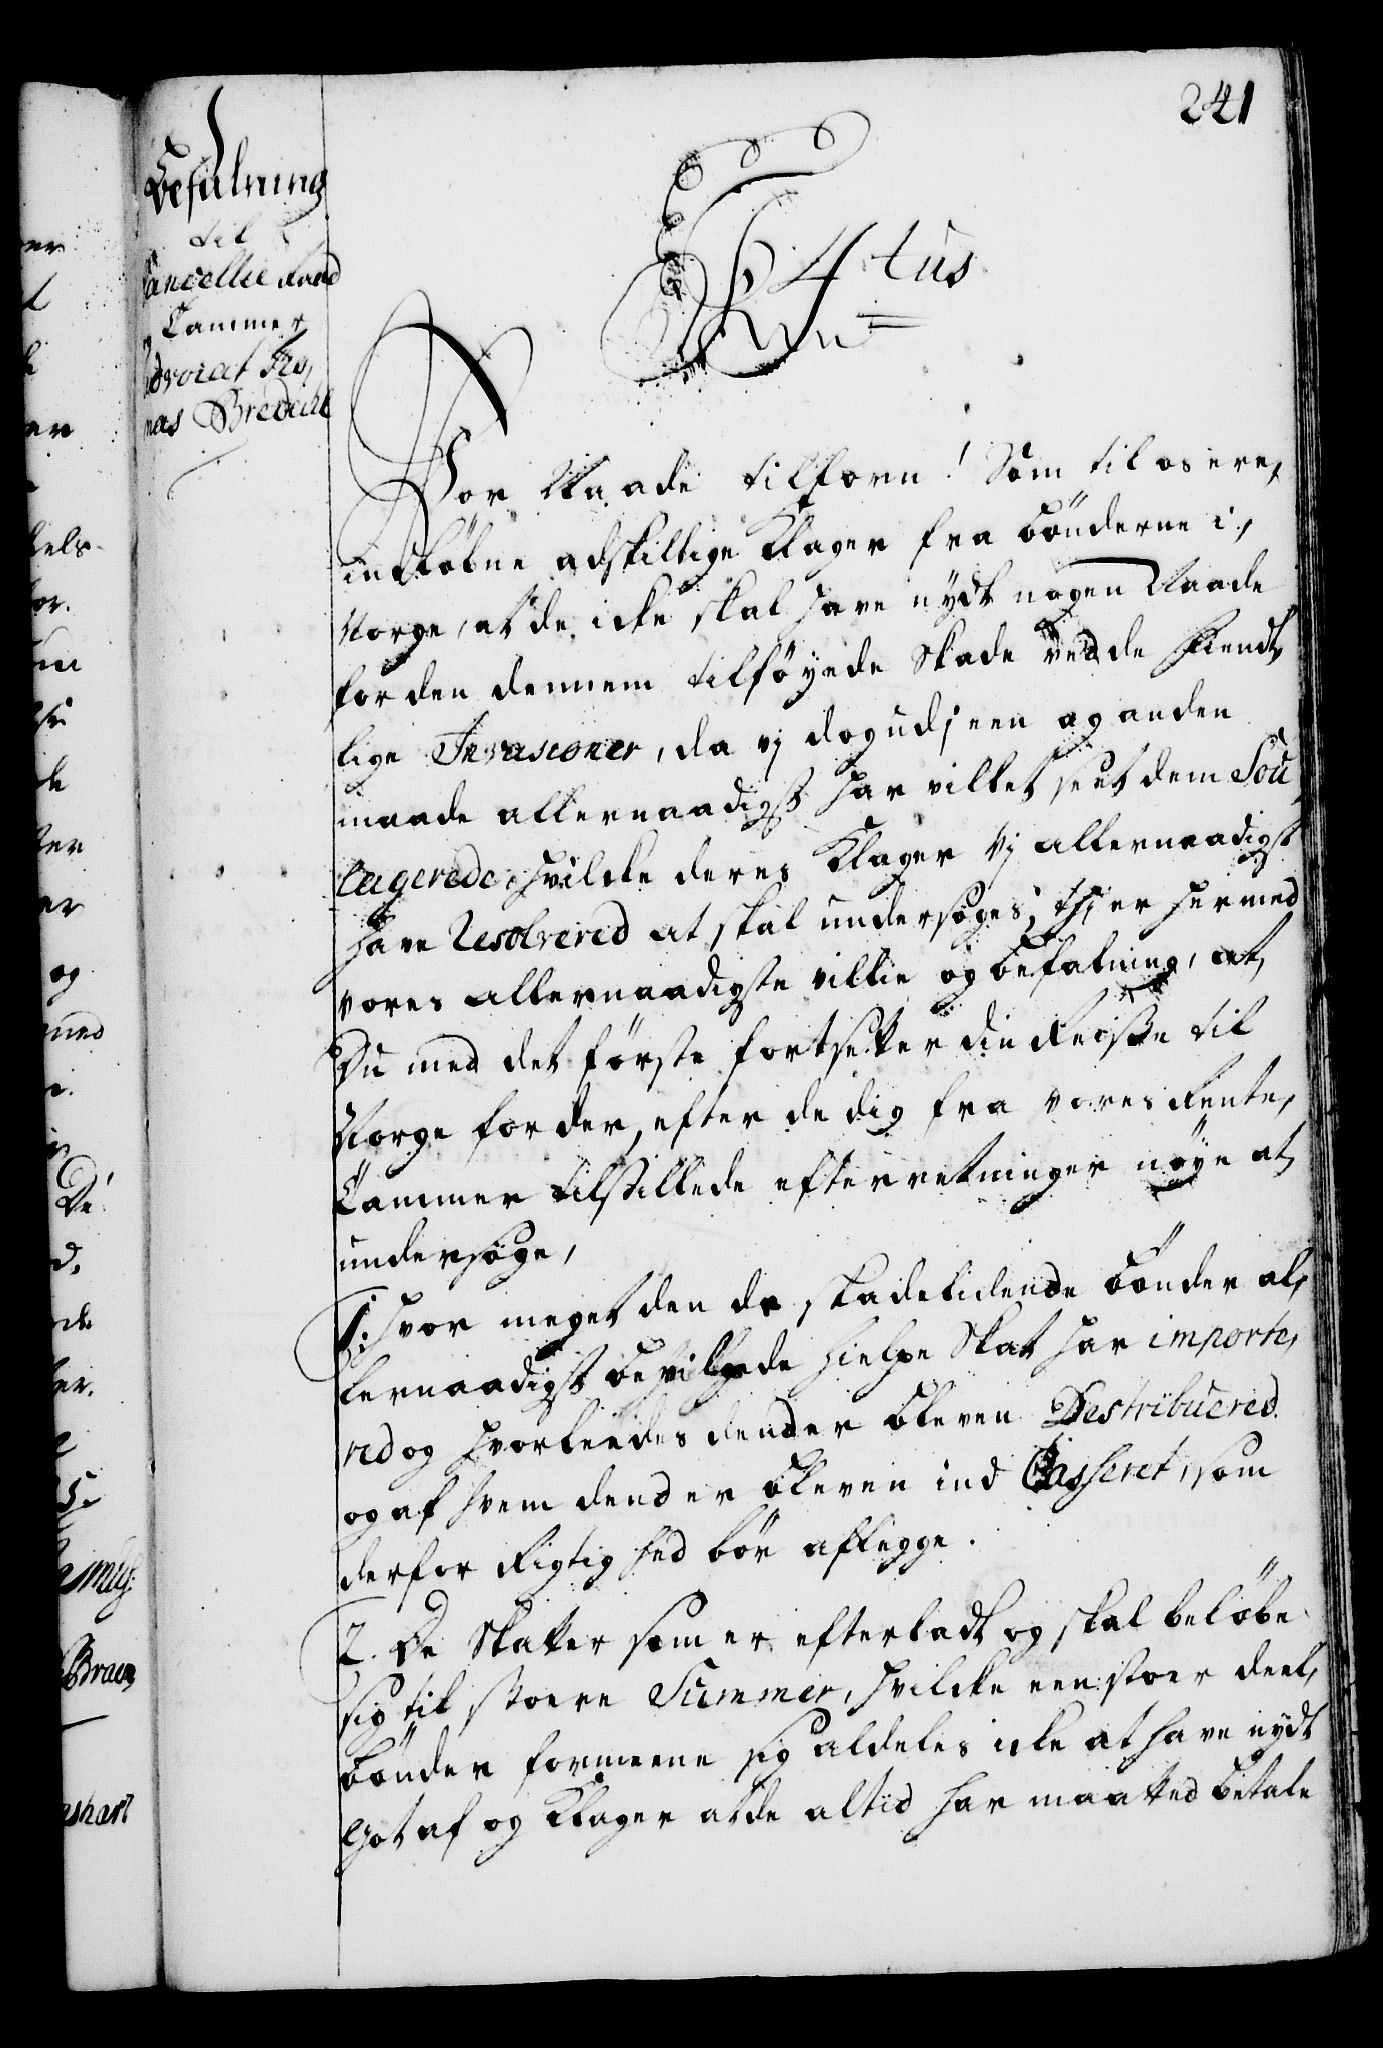 241
Befalning
til
Cancellie Raad
og Cammer
Advocat Tho,
mas Bredahl
F 4tus
Vor Naade tilforn! Som til os ere,
indløbne adskillige Klager fra bönderne i,
Norge, at de icke skal have nydt nogen Naade
for den dennem tilföyede Skade ved de fiendt,
lige Invasioner, da vj dog udj een og anden
maade allernaadigst har villet seet dem Sou,
lagerede, hvilcke deres Klager Vj allernaadigst
have Resolvered at skal undersöges; thj er hermed
vores allernaadigste villie og befalning, at,
Du med det förste fortsetter din Reisse til
Norge for der, efter de dig fra vores Rente,
Cammer tilstillede efterretninger nöye at,
undersöge,
1. Hvor meget den de skadelidende bönder al,
lernaadigst bevilgede hielpe Skat har importe,
red og hvorleedes dend er bleven Destribuered
og af hvem dend er bleven ind Casseret, som
derfor Rigtighed bör aflegge.
2. De Skatter som er efterladt og skal belöbe
sig til storre Summer, hvilcke een stoer deel,
bönder formeene sig aldeles icke at have nydt
got af og Klager at de altid har maatted betale